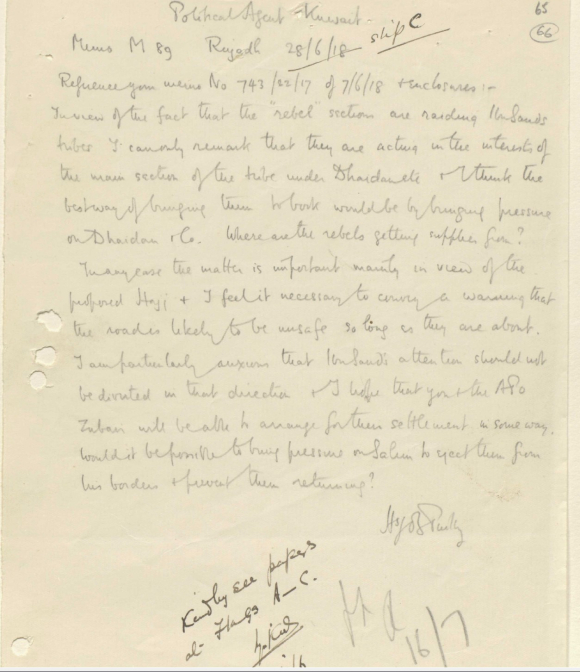 65
66
Political Agent Kuwait.
slip C
Memo M 89 Riyadh 28/6/18
Reference your memo No 743/22/17 of 7/6/18 & enclosures :-
In view of the fact that the "rebel" section are raiding Ibn Sauds
tribes I can only remark that they are acting in the interests of
the main section of the tribe under Dhaidan etc & I think the
best way of bringing them to book would be by bringing pressure
on Dhaidan & Co. Where are the rebels getting supplies from?
In any case the matter is important mainly in view of the
proposed Hajj & I feel it necessary to convey a warning that
the road is likely to be unsafe so long as they are about.
I am particularly anxious that Ibn Sauds attention should not
be diverted in that direction & I hope that you & the APO
Zubair will be able to arrange for their settlement in some way.
Would it be possible to bring pressure on Salim to eject them from
his borders & prevent them returning?
Kindly see papers
at Flags A – C.
16/7